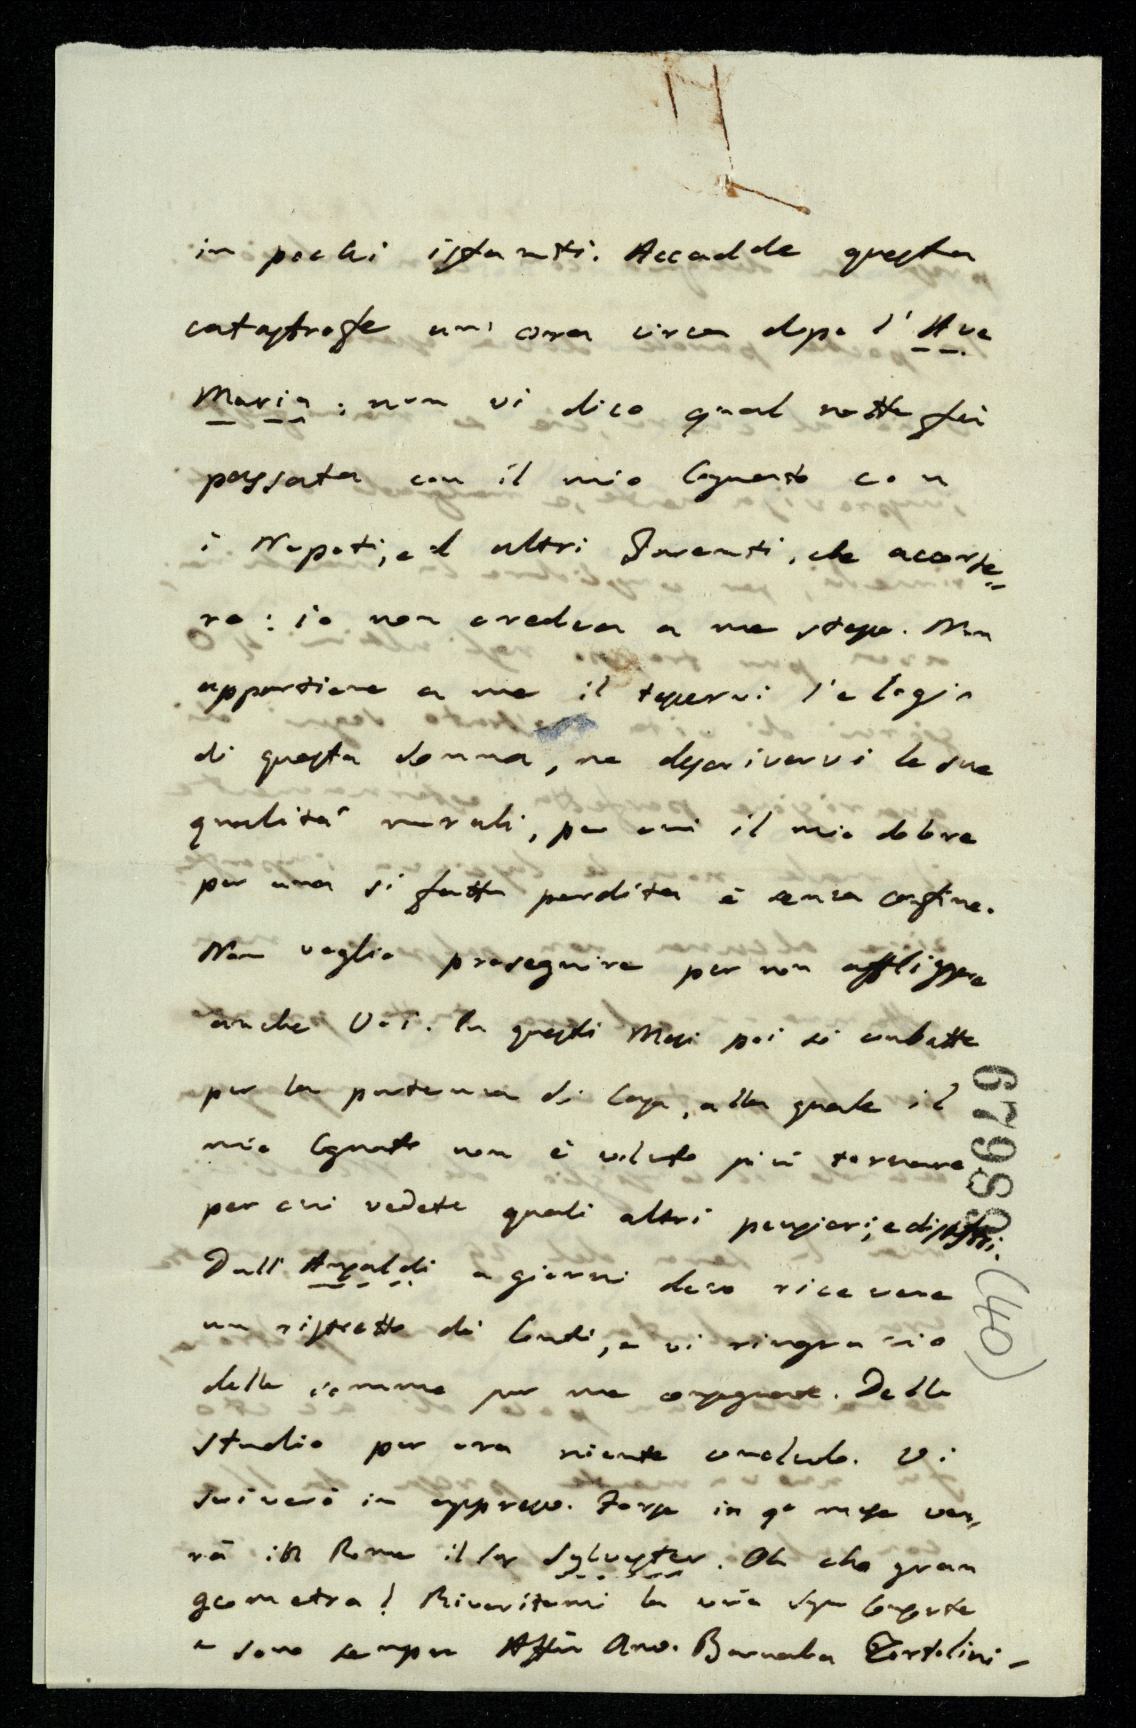 in pochi istanti. Accadde questa
catastrofe un' ora circa dopo l' Ave
Maria; non vi dico qual notte fu
passata con il mio Cognato con
i Nepoti, ed altri Parenti, che accorse=
ro: io non credeva a me stesso. Non
appartiene a me il tesservi l'elogio
di questa donna, ne descrivervi le sue
qualità morali, per cui il mio dolore
per una si fatta perdita è senza confine.
Non voglio proseguire per non affliggere
anche Voi. In questi Mesi poi si combatte
per la partenza di Casa, alla quale il
mio Cognato non è voluto più tornare
per cui vedete quali altri pensieri, e disastri.
Dall' Arzaldi a giorni devo ricevere
un ristretto di Conti, e vi ringrazio
delle somme per me consegnate. Dello
studio per ora niente concludo. Vi
scriverò in appresso. Forse in qo mese ver,
rà in Roma il Sor Sylvester. Oh che gran
geometra! Riveritemi la vra Sigra Consorte
e sono sempre Affmo Amo. Barnaba Tortolini -
67989
(40)